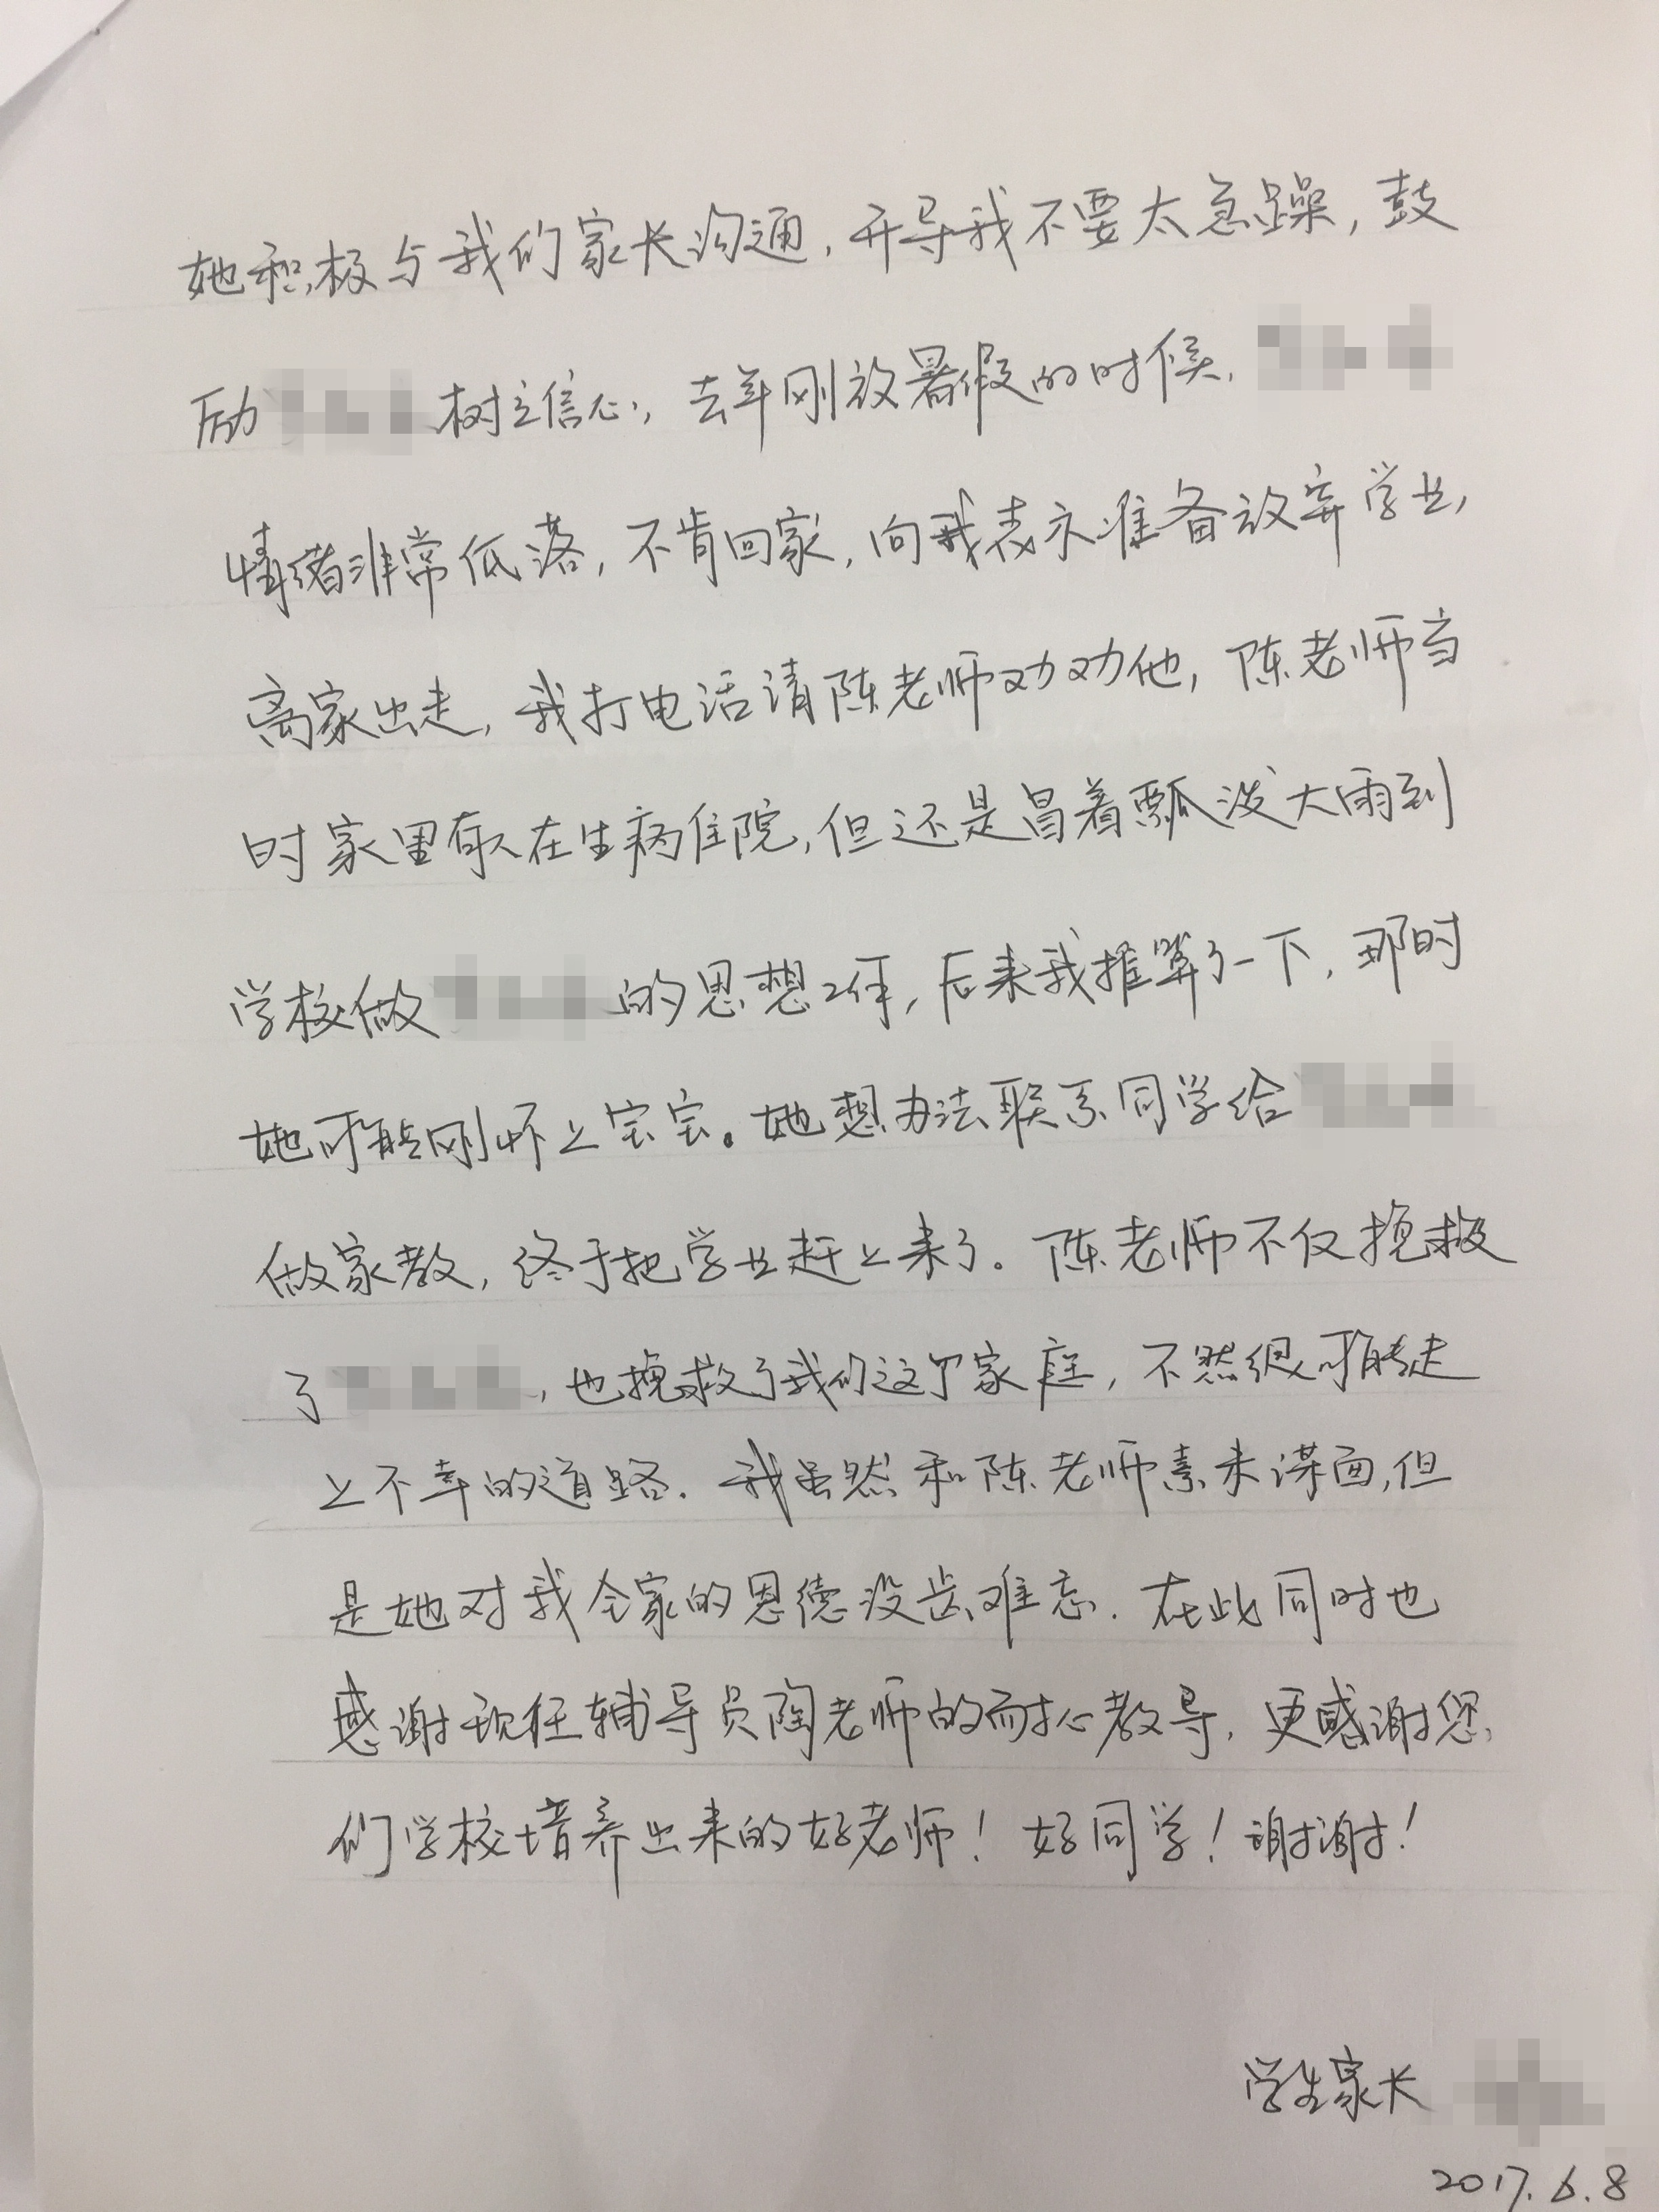 她积极与我们家长沟通，开导我不要太急躁，鼓
励 树立信心，去年刚放暑假的时候，
情绪非常低落，不肯回家，向我表示准备放弃学业，
离家出走，我打电话请陈老师劝劝他，陈老师当
时家里有人在生病住院，但还是冒着瓢泼大雨到
学校做 的思想工作，后来我推算了一下，那时
她可能刚怀上宝宝。她想办法联系同学给
做家教，终于把学业赶上来了。陈老师不仅挽救
了 ，也挽救了我们这个家庭，不然很可能走
上不幸的道路．我虽然和陈老师素未谋面，但
是她对我全家的恩德没齿难忘．在此同时也
感谢现任辅导员陶老师的耐心教导，更感谢您
们学校培养出来的好老师！好同学！谢谢！
学生家长
2017.6.8